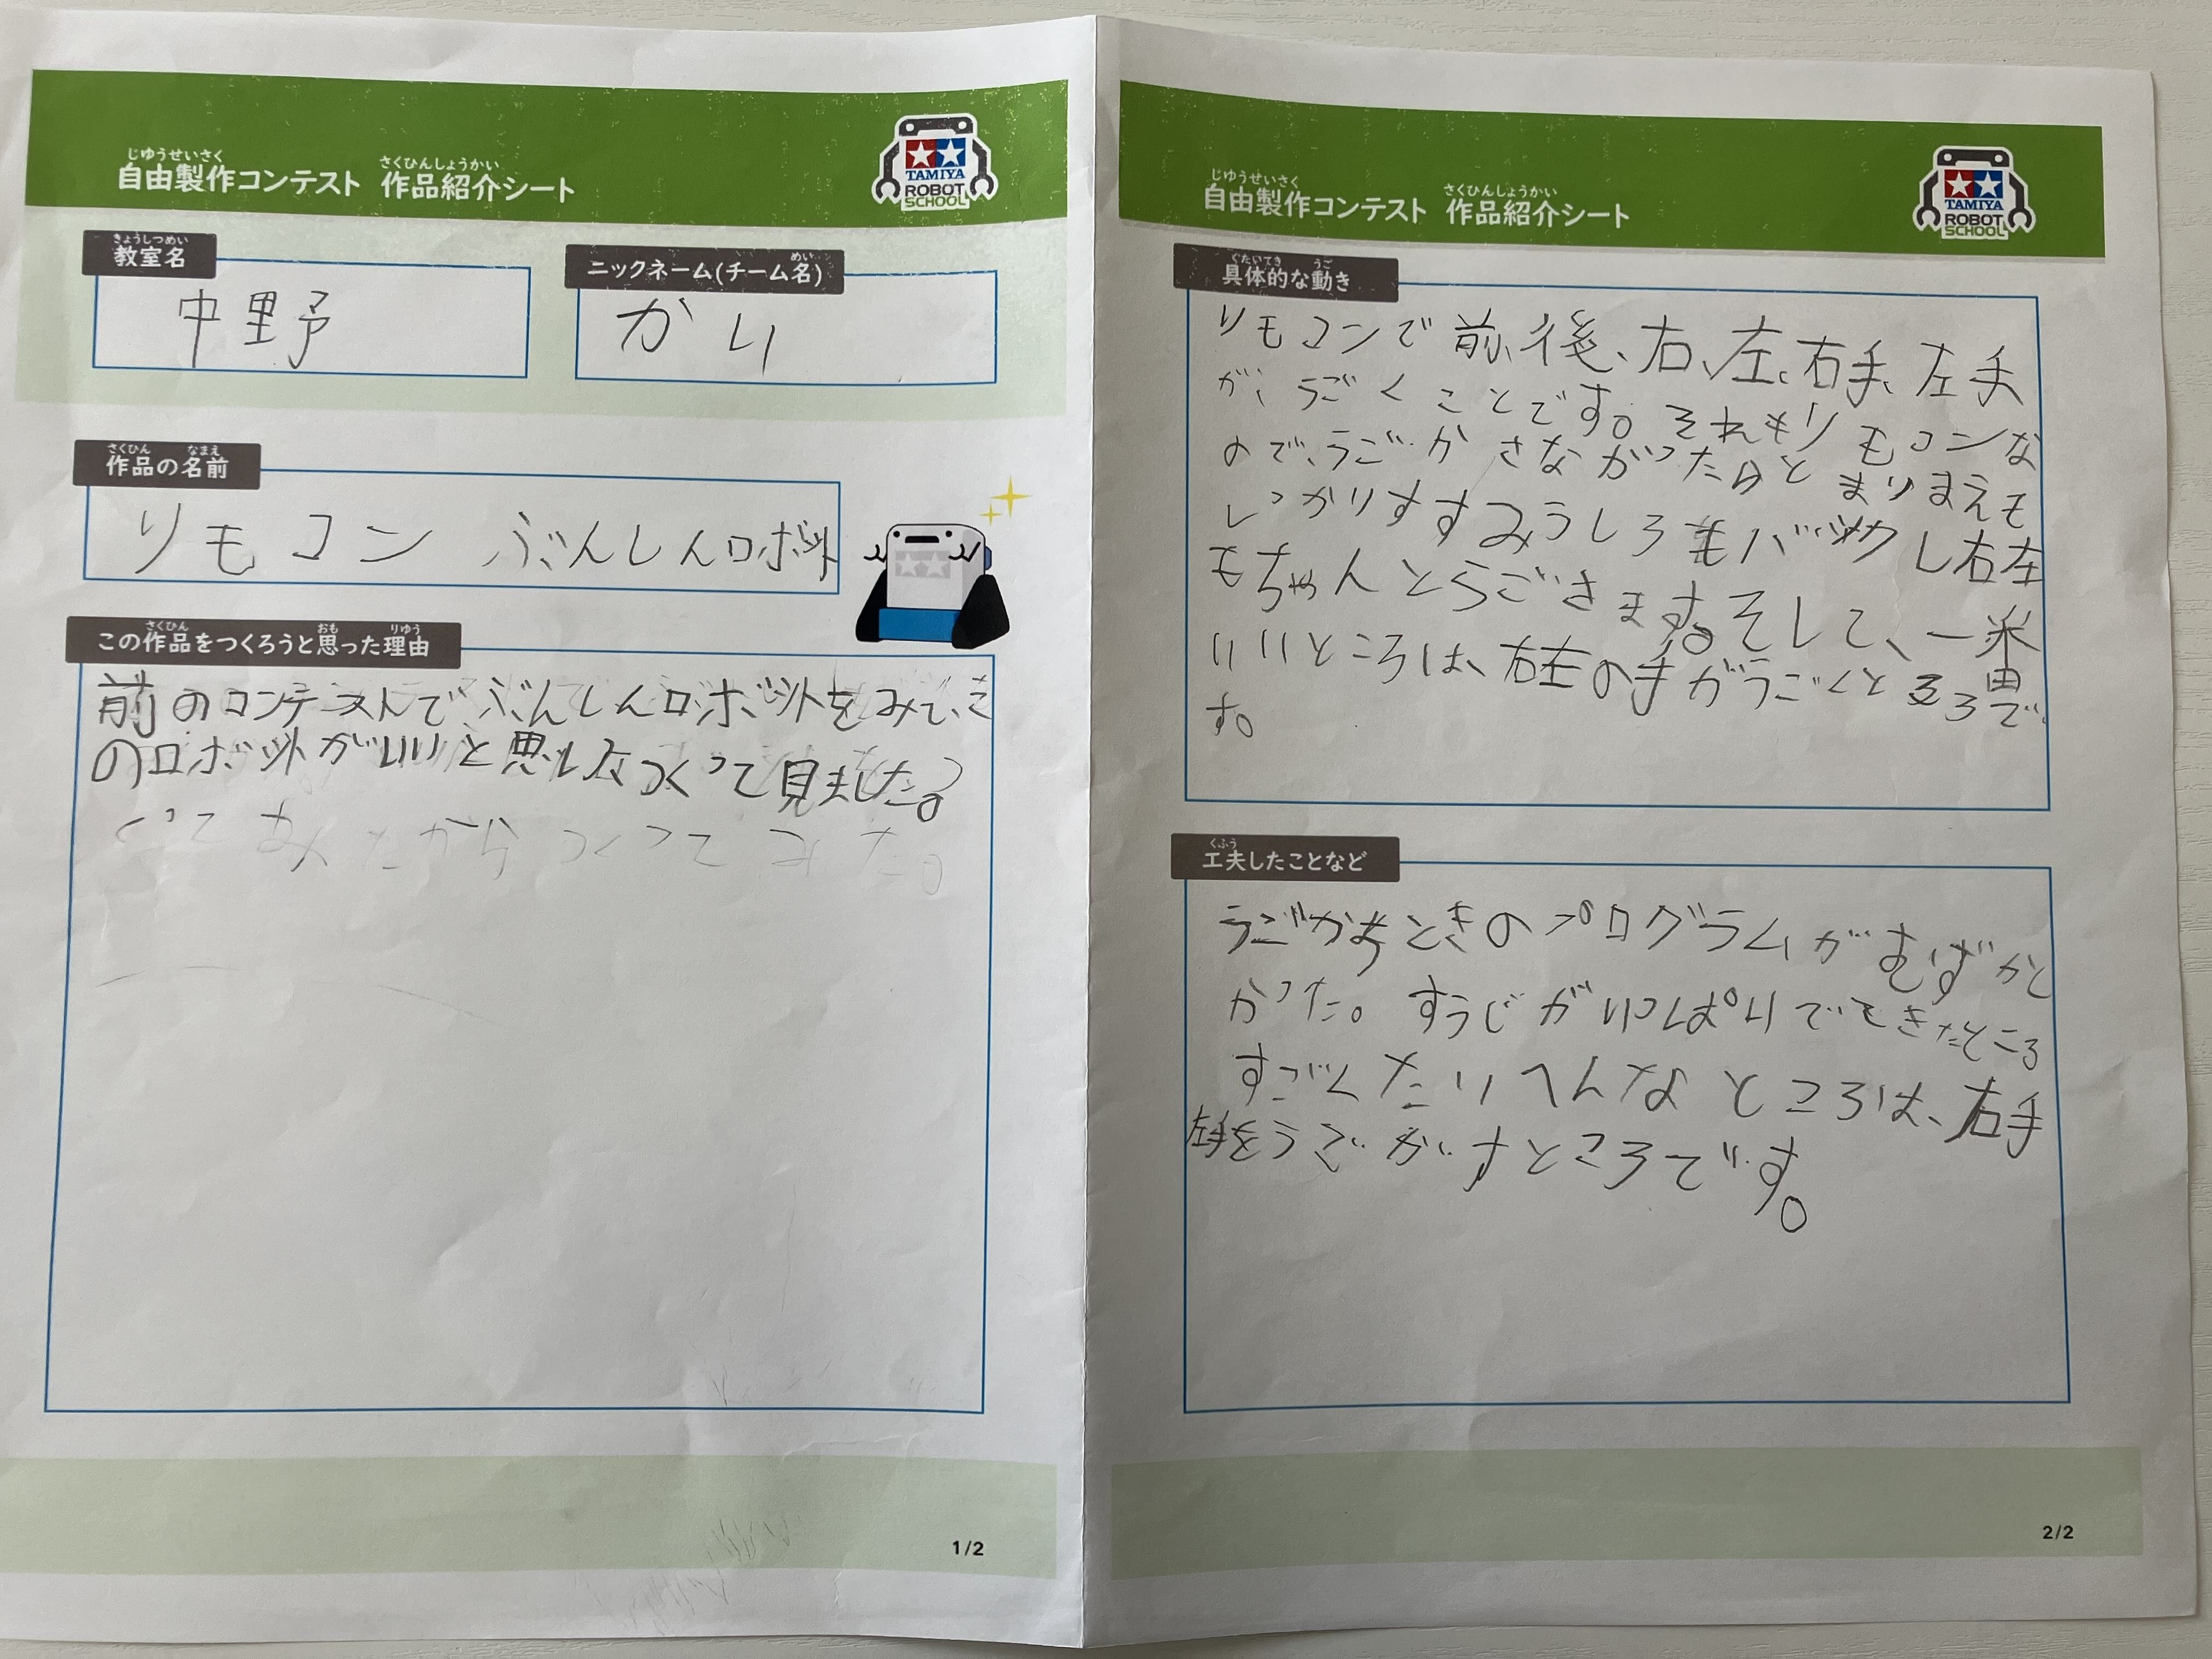 じゆうせいさく さくひんしょうかい
自由製作コンテスト 作品紹介シート
TAMIYA
ROBOT
SCHOOL
きょうしつめい
教室名
中野
めい
ニックネーム(チーム名)
かい
さくひん なまえ
作品の名前
リモコン ぶんしんロボット
さくひん おも りゆう
この作品をつくろうと思った理由
前のコンテストでぶんしんロボットをみて、そ
のロボットがいいと思いなつくって見ました。
つくってみた。
1/2
じゆうせいさく さくひんしょうかい
自由製作コンテスト 作品紹介シート
TAMIYA
ROBOT
SCHOOL
ぐたいてき うご
具体的な動き
リモコンで前、後、右、左、右手、左手
が、うごくことです。それもリモコンな
ので、うごかさなかったらとまりまえも
しっかりすすみうしろもバックし右左
もちゃんとうごきます。そして、一番
いいところは、右左の手がうごくところで
す。
くふう
工夫したことなど
うごかすときのプログラムがむずかし
かった。すうじがいっぱいでてきたところ
すごくたいへんなところは、右手
左手をうごかすところです。
2/2